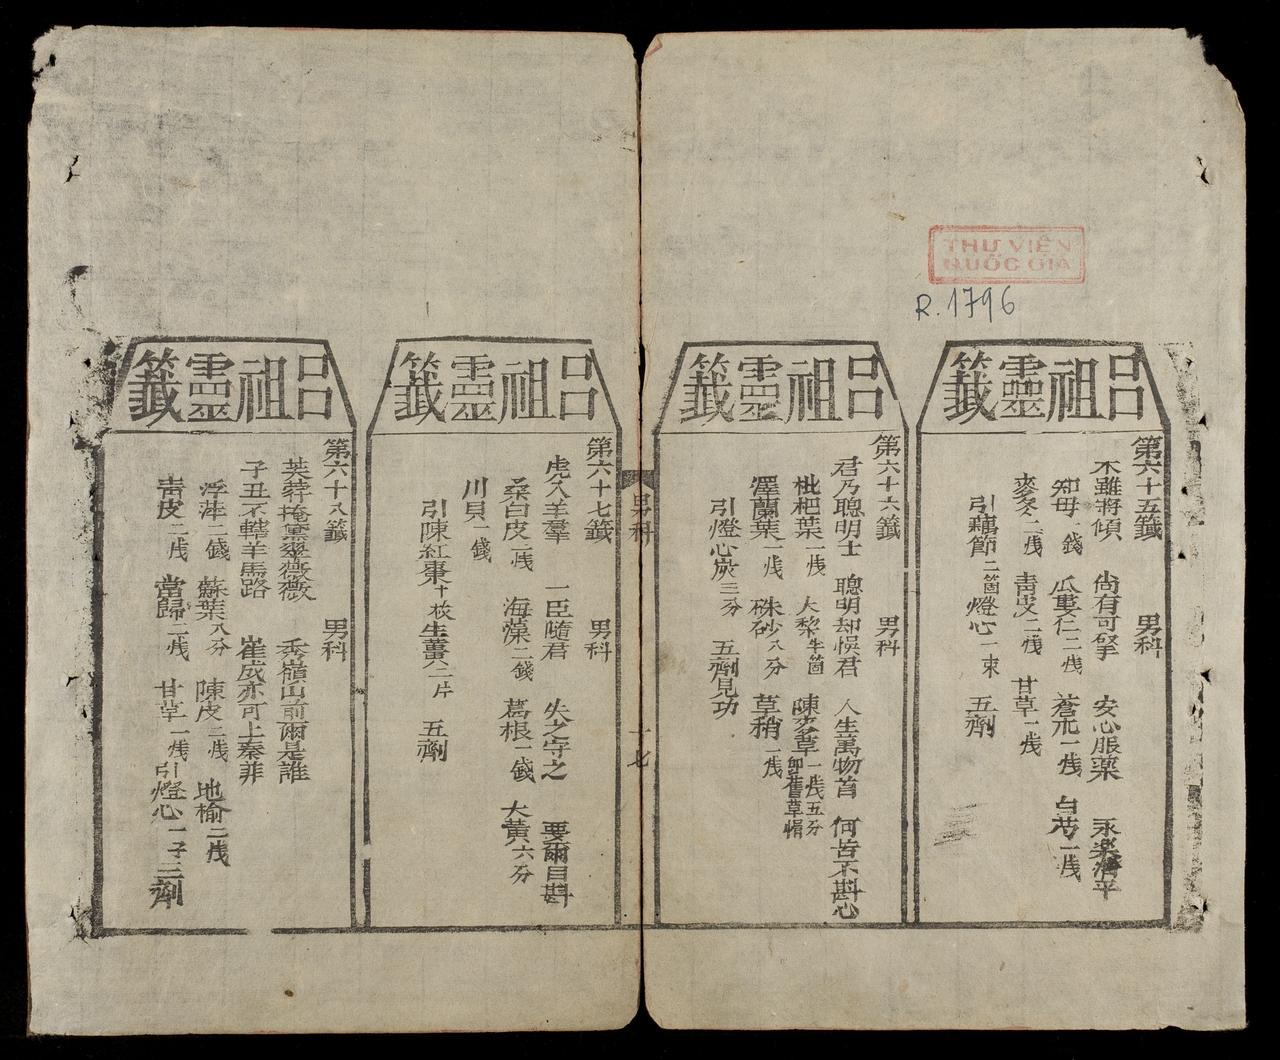 THƯ VIỆN
QUỐC GIA
R.1796
呂祖靈籤
第六十五籤 男科
不雖將傾 尚有可擎 安心服藥 永樂清平
知母一錢 瓜蔞仁二戋 蒼朮一戋 白芍一戋
麥冬二戋 青皮二戋 甘草一戋
引藕節二箇 燈心一束 五劑
呂祖靈籤
第六十六籤 男科
君乃聰明士 聰明却悞君 人生萬物首 何皆不斟心
枇杷葉一戋 大黎半箇 陳多草一戋五分 即舊草帽
澤蘭葉一戋 硃砂八分 草稍一戋
引燈心炭三分 五劑見功
男科
十七
呂祖靈籤
第六十七籤 男科
虎入羊羣 一臣隨君 失之守之 要爾自斟
桑白皮二戋 海藻二錢 葛根一錢 大黃六分
川貝一錢
引陳紅棗十枚 生薑二片 五劑
呂祖靈籤
第六十八籤 男科
芙蓉掩 翠薇薇 秀嶺山前爾是誰
子丑不轄羊馬路 崔成亦可上秦菲
浮萍一錢 蘇葉八分 陳皮二戋 地榆二戋
青皮二戋 當歸二戋 甘草一戋 引燈心一子 三劑